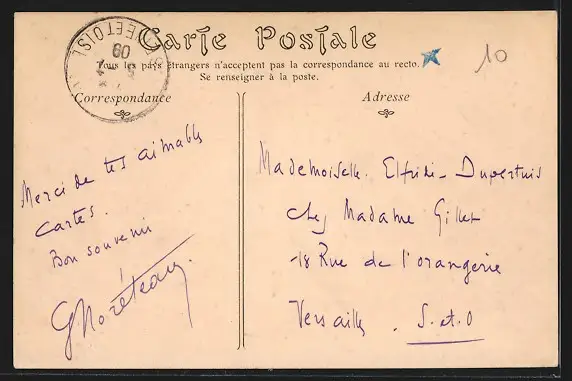 Carte Postale
Tous les pays étrangers n'acceptent pas la correspondance au recto.
Se renseigner à la poste.
10
Correspondance
Merci de tes aimables
cartes.
Bon souvenir
Adresse
Mademoiselle.
chez Madame Gillet
18 Rue de l'orangerie
Versailles. S. et. O